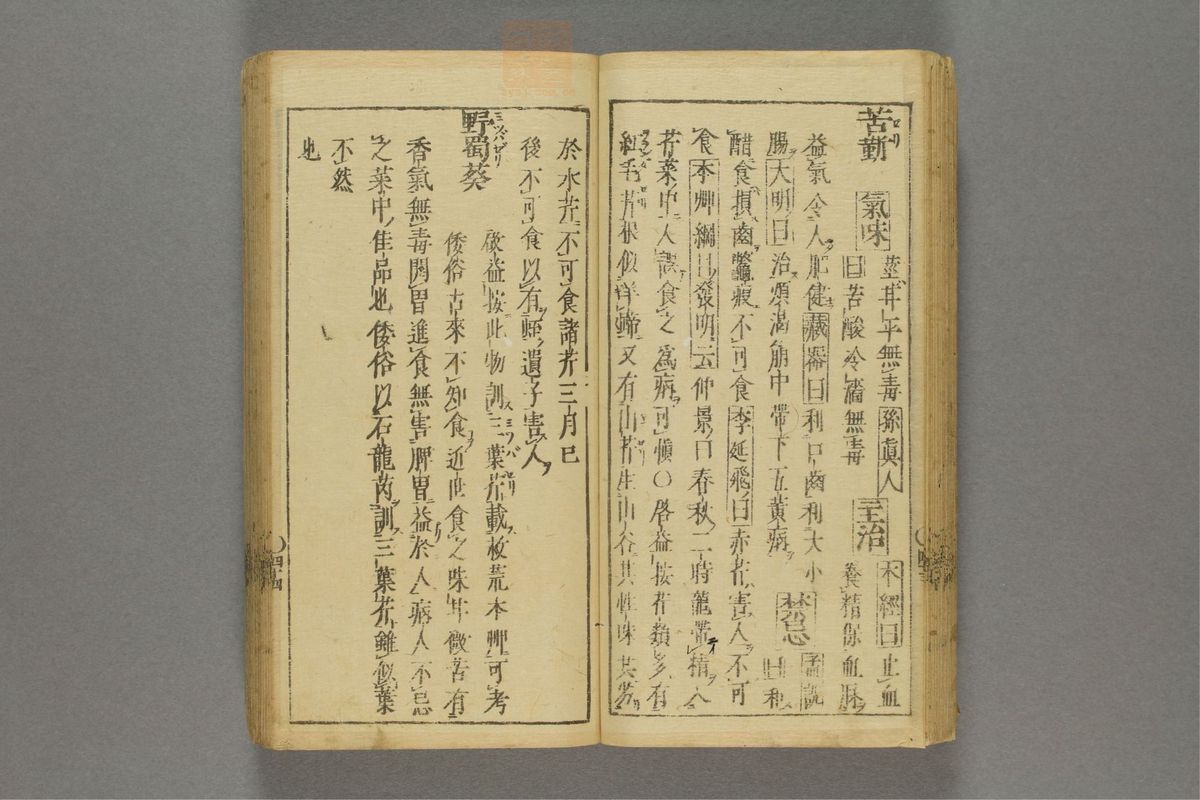 苦蘄 氣味 莖甘平無毒孫眞人 主治 本經曰止血
曰苦酸冷濇無毒 養精保血脉
益氣令人肥健藏器曰利口齒利大小
腸大明曰治煩渴崩中帶下五黃病 禁忌 孟詵曰和
醋食損齒鼈瘕不可食李延飛曰赤芹害人不可
食本艸綱目發明云仲景曰春秋二時龍帶精入
芹菜中人誤食之爲病可愼〇啓益按芹類多有
紅毛芹根似羊蹄又有山芹生山谷其性味共劣
於水芹不可食諸芹三月已
後不可食以有蛭遺子害人
野蜀葵 啟益按此物訓三葉芹載救荒本艸可考
倭俗古來不知食近世食之味甘微苦有
香氣無毒開胃進食無害脾胃益於人病人不忌
之菜中佳品也倭俗以石龍芮訓三葉芹雖似葉
不然
也
四十四